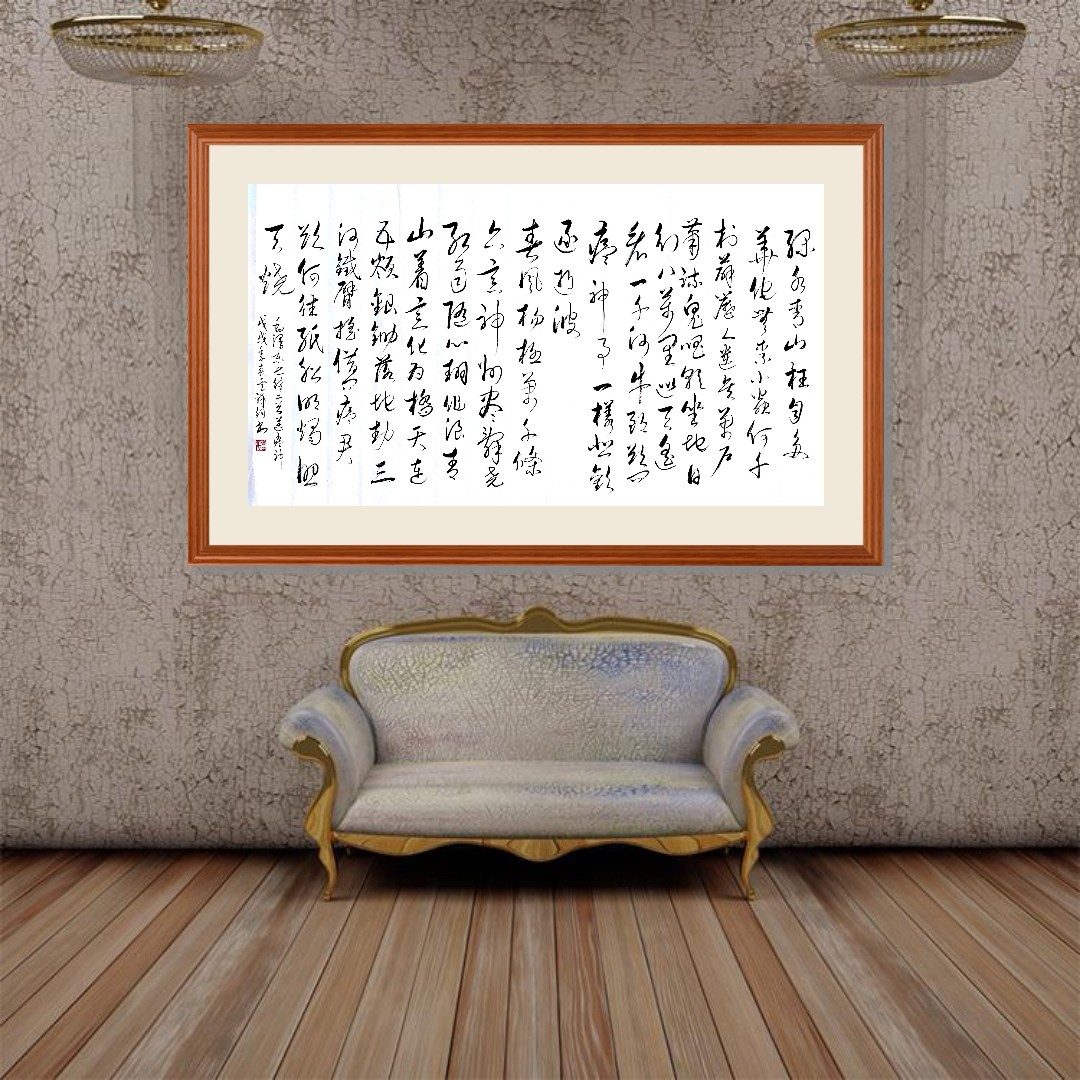 绿水青山枉自多
華佗無奈小蟲何千
村薜荔人遺矢萬户
蕭疏鬼唱歌坐地日
行八萬里巡天遥
看一千河牛郎欲问
瘟神事一樣悲歡
逐逝波
春風杨柳萬千條
六亿神州尽舜尧
红雨随心翻作浪青
山着意化为橋天连
五嶺銀鋤落地動三
河鐵臂摇借问瘟君
欲何往紙船明燭照
天燒
毛澤東七律二首送瘟神
戊戌年春